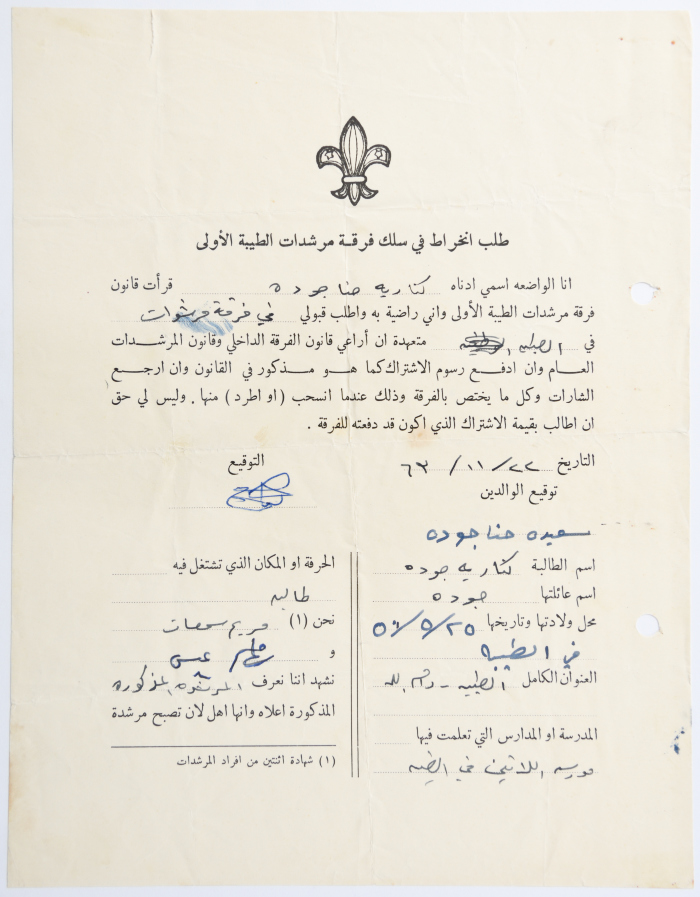 طلب انخراط في سلك فرقة مرشدات الطيبة الأولى
انا الواضعه اسمي ادناه كتاريه حنا جوده قرأت قانون
فرقة مرشدات الطيبة الأولى واني راضية به واطلب قبولي في فرقة مرشدات
في الطيبه متعهدة ان أراعي قانون الفرقة الداخلي وقانون المرشدات
العام وان ادفع رسوم الاشتراك كما هو مذكور في القانون وان ارجع
الشارات وكل ما يختص بالفرقة وذلك عندما انسحب (او اطرد) منها. وليس لي حق
ان اطالب بقيمة الاشتراك الذي اكون قد دفعته للفرقة.
التاريخ ٢٢/١١/٦٣
التوقيع
توقيع الوالدين
سعيده حنا جوده
اسم الطالبة كتاريه جوده
اسم عائلتها جوده
محل ولادتها وتاريخها ٢٥/٩/٥١
في الطيبه
العنوان الكامل الطيبه - رام الله
المدرسة او المدارس التي تعلمت فيها
مدرسه اللاتين في الطيبه
الحرفة او المكان الذي تشتغل فيه
طالبه
نحن (١) مريم سمعات
و عيسى
نشهد اننا نعرف المرشده المذكوره
المذكورة اعلاه وانها اهل لان تصبح مرشدة
(١) شهادة اثنتين من افراد المرشدات